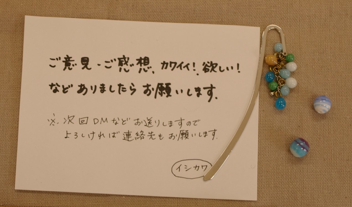 ご意見・ご感想、カワイイ！、欲しい！
などありましたら お願いします。
※. 次回DMなどお送りしますので
よろしければ 連絡先も お願いします。
イシカワ